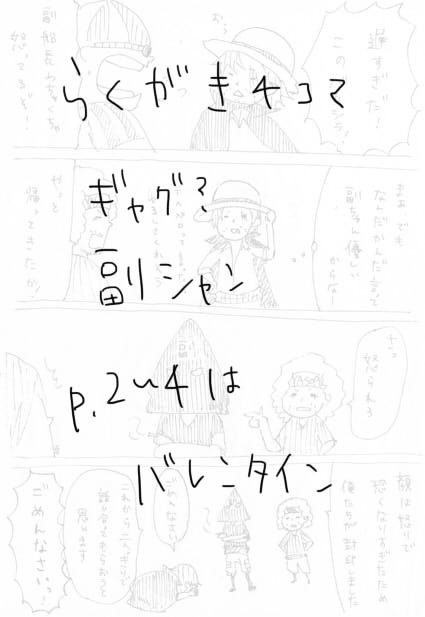 らくがき4コマ
ギャグ?
副シャン
p.2〜4は
バレンタイン
遅すぎだ!
副船長めちゃくちゃ
怒ってるぞ!
まぁでも
なんだかんだ言って
副ちゃん優しい
からなー
やっと
帰ってきたか!
怒られろ
副
顔は怒りで
恐くなりすぎたため
俺たちが封印しました
ごめんなさい
これから二人っきりで
思います
ごめんなさいっ!